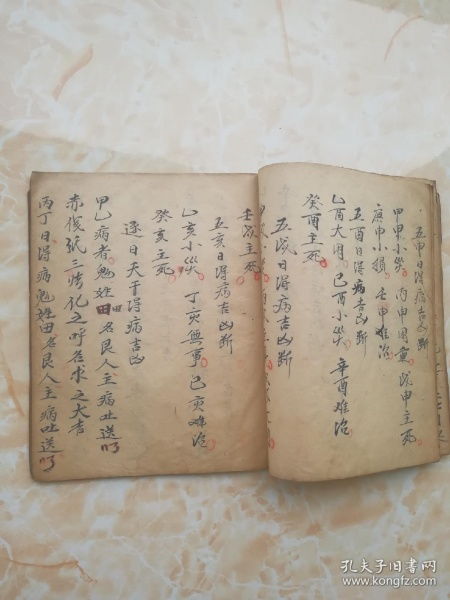 五申日得病吉凶断
甲申小災 丙申困重 戊申主死
庚申小損 壬申难治
五酉日得病吉凶断
乙酉大困 己酉小災 辛酉难治
癸酉主死
五戍日得病吉凶断
壬戍主死
五亥日得病吉凶断
乙亥小災 丁亥無事 己亥难治
癸亥主死
逐日天干得病吉凶
甲乙病者鬼姓田名良人主病吐送
赤後纸三張化之呼名求之大吉
丙丁日得病鬼姓田名良人主病吐送
孔夫子旧书网
www.kongfz.com